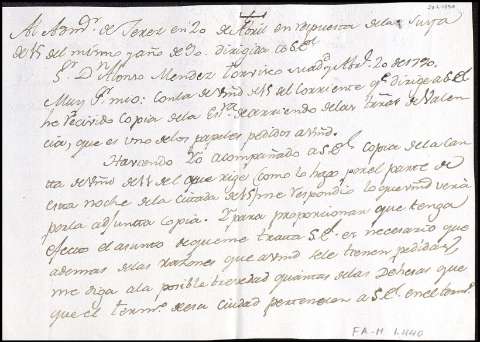 Al Admr. de Jerez en 20 de Abril en respuesta de la suya
de 15 del mismo y año de 90. dirigida a S.E.
Sr. Dn. Alonso Mendez Madrid y Abril 20 de 1790.
Muy Sr. mio: con la de Vmd. de 15 del corriente qe. dirige a S.E.
he recivido copia de la Esra. de arriendo de las tierras de Valen-
cia, que es uno de los papeles pedidos a Vmd.
Haviendo Yo acompañado a S.E. copia de la Car-
ta de Vmd. de 11 del que rige (como lo hago por el parte de
esta noche de la citada de 15) me respondio lo que Vmd. verá
por la adjunta copia. Y para proporcionar que tenga
efecto el asunto de que me tratta S.E. es necesario que
ademas de las razones que a Vmd. se le tienen pedidas,
me diga a la posible brevedad quantas de las Dehesas que
que el termo. de esa ciudad pertenecen a S.E. en el termo.
FA-M 1.440